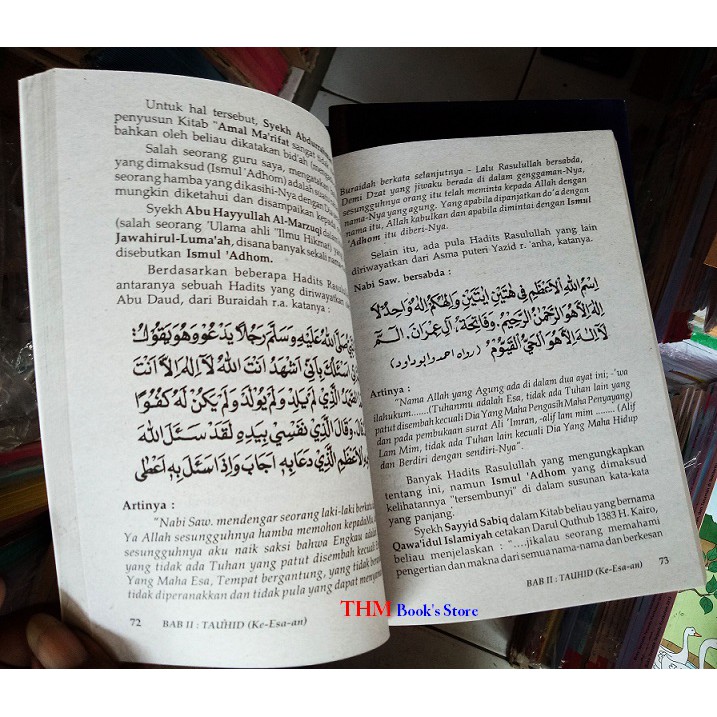 Untuk hal tersebut, Syekh Abdurra
penyusun Kitab "Amal Ma'rifat sangat tida
bahkan oleh beliau dikatakan bid'ah (meng
Salah seorang guru saya, mengata
yang dimaksud (Ismul 'Adhom) adalah suatu
seorang hamba yang dikasihi-Nya dengan Da
mungkin diketahui dan disampaikan kepada
Syekh Abu Hayyullah Al-Marzuqi dala
(salah seorang 'Ulama ahli "Ilmu Hikmat) yang
Jawahirul-Luma'ah, disana banyak sekali nama
disebutkan Ismul 'Adhom.
Berdasarkan beberapa Hadits Rasulul
antaranya sebuah Hadits yang diriwayatkan
Abu Daud, dari Buraidah r.a. katanya :
صَلَّى اللهُ عَلَيْهِ وَسَلَّمَ رَجُلًا يَدْعُوْ وَهُوَ يَقُوْلُ :
اَسْئَلُكَ بِاَنِّيْ اَشْهَدُ اَنْتَ اللهُ لَآ اِلٰهَ اِلَّا اَنْتَ
الصَّمَدُ الَّذِيْ لَمْ يَلِدْ وَلَمْ يُوْلَدْ وَلَمْ يَكُنْ لَهُ كُفُوًا
قَالَ، وَقَالَ الَّذِيْ نَفْسِيْ بِيَدِهِ لَقَدْ سَئَلَ اللهَ
الْاَعْظَمِ الَّذِيْ دُعَا بِهِ اَجَابَ وَاِذَا سَئَلَ بِهِ اَعْطٰى
Artinya :
"Nabi Saw. mendengar seorang laki-laki berkata
Ya Allah sesungguhnya hamba memohon kepadaMu,
sesungguhnya aku naik saksi bahwa Engkau adalah
yang tidak ada Tuhan yang patut disembah kecuali E
Yang Maha Esa, Tempat bergantung, yang tidak bera
tidak diperanakkan dan tidak pula yang dapat menyama
72 BAB II : TAUHID (Ke-Esa-an)
Buraidah berkata selanjutnya - Lalu Rasulullah bersabda,
Demi Dzat yang jiwaku berada di dalam genggaman-Nya,
sesungguhnya orang itu telah meminta kepada Allah dengan
nama-Nya yang agung. Yang apabila dipanjatkan do'a dengan
nama itu, Allah kabulkan dan apabila dimintai dengan Ismul
'Adhom itu diberi-Nya.
Selain itu, ada pula Hadits Rasulullah yang lain
diriwayatkan dari Asma puteri Yazid r. 'anha, katanya.
Nabi Saw. bersabda :
اِسْمُ اللهِ الْاَعْظَمِ فِى هٰتَيْنِ اٰيَتَيْنِ وَاِلٰهُكُمْ اِلٰهٌ وَاحِدٌ لَآ
اِلٰهَ اِلَّا هُوَ الرَّحْمٰنُ الرَّحِيْمُ. وَفَاتِحَةِ، اٰلِ عِمْرَانَ. الٓمّٓ
لَآ اِلٰهَ اِلَّا هُوَ الْحَيُّ الْقَيُّوْمُ (رواه احمد وابو داود)
Artinya :
"Nama Allah yang Agung ada di dalam dua ayat ini; -'wa
ilahukum.......(Tuhanmu adalah Esa, tidak ada Tuhan lain yang
patut disembah kecuali Dia Yang Maha Pengasih Maha Penyayang)
dan pada pembukaan surat Ali 'Imran, -alif lam mim ........ (Alif
Lam Mim, tidak ada Tuhan lain kecuali Dia Yang Maha Hidup
dan Berdiri dengan sendiri-Nya".
Banyak Hadits Rasulullah yang mengungkapkan
tentang ini, namun Ismul 'Adhom yang dimaksud
kelihatannya "tersembunyi" di dalam susunan kata-kata
yang panjang.
Syekh Sayyid Sabiq dalam Kitab beliau yang bernama
Qawa'idul Islamiyah cetakan Darul Quthub 1383 H. Kairo,
beliau menjelaskan : "....jikalau seorang memahami
pengertian dan makna dari semua nama-nama dan berkesan
BAB II : TAUHID (Ke-Esa-an) 73
THM Book's Store